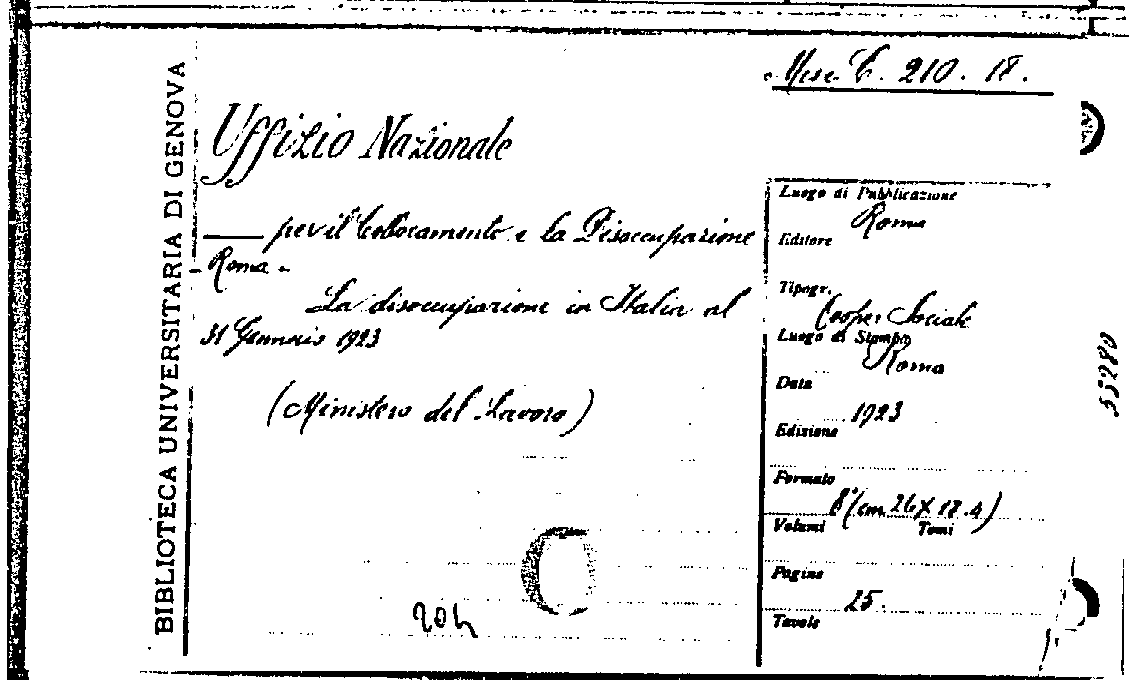 BIBLIOTECA UNIVERSITARIA DI GENOVA
Misc. C. 210. 18.
Uffizio Nazionale
per il Collocamento e la Disoccupazione
Roma.
La disoccupazione in Italia al
31 Gennaio 1923
(Ministero del Lavoro)
204
Luogo di Pubblicazione
Roma
Editore
Tipogr.
Cooper. Sociale
Luogo di Stampa
Roma
Data
1923
Edizione
Formato
8° (cm. 26 X 18.4)
Volumi Tomi
Pagine
25.
Tavole
55280